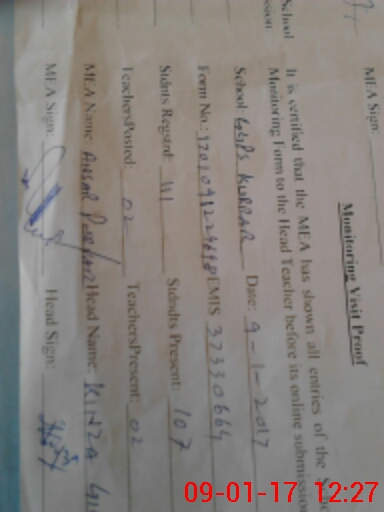 MEA Sign:
Monitoring Visit Proof
It is certified that the MEA has shown all entries of the
Monitoring Form to the Head Teacher before its online submission
School GGPS KURRAR Date: 9-1-2017
Form No.: EMIS 37330664
Stdnts Regstrd: 111 Stdnts Present: 107
TeachersPosted: 02 TeachersPresent: 02
MEA Name: ANSAR Head Name: KINZA
MEA Sign: Head Sign:
School
09-01-17 12:27